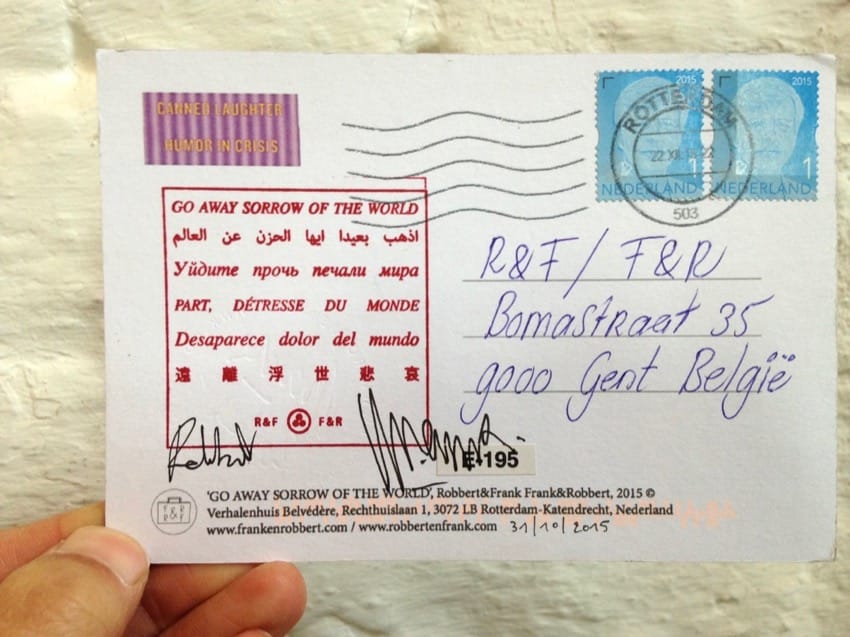 CANNED LAUGHTER
HUMOR IN CRISIS
2015
2015
1
1
NEDERLAND
NEDERLAND
ROTTERDAM
503
GO AWAY SORROW OF THE WORLD
اذهب بعيدا ايها الحزن عن العالم
Уйдите прочь печали мира
PART, DÉTRESSE DU MONDE
Desaparece dolor del mundo
遠離浮世悲哀
R&F F&R
R&F / F&R
Bomastraat 35
9000 Gent België
E-195
'GO AWAY SORROW OF THE WORLD', Robbert&Frank Frank&Robbert, 2015 ©
Verhalenhuis Belvédère, Rechthuislaan 1, 3072 LB Rotterdam-Katendrecht, Nederland
www.frankenrobbert.com / www.robbertenfrank.com 31/10/2015